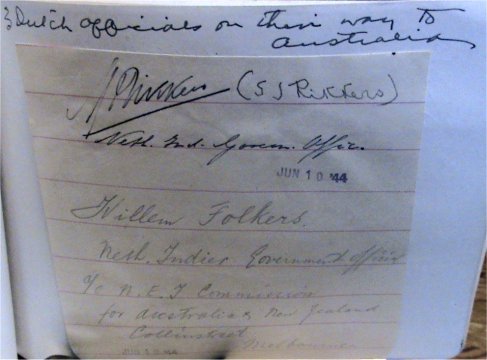 3 Dutch officials on their way to
Australia
(S J Rikkers)
Neth. Ind. Govern. Offic.
JUN 10 '44
Willem Folkers.
Neth. Indies Government Official
c/o N.E.I Commission
for Australia & New Zealand
Collinstreet
Melbourne
JUN 10 '44